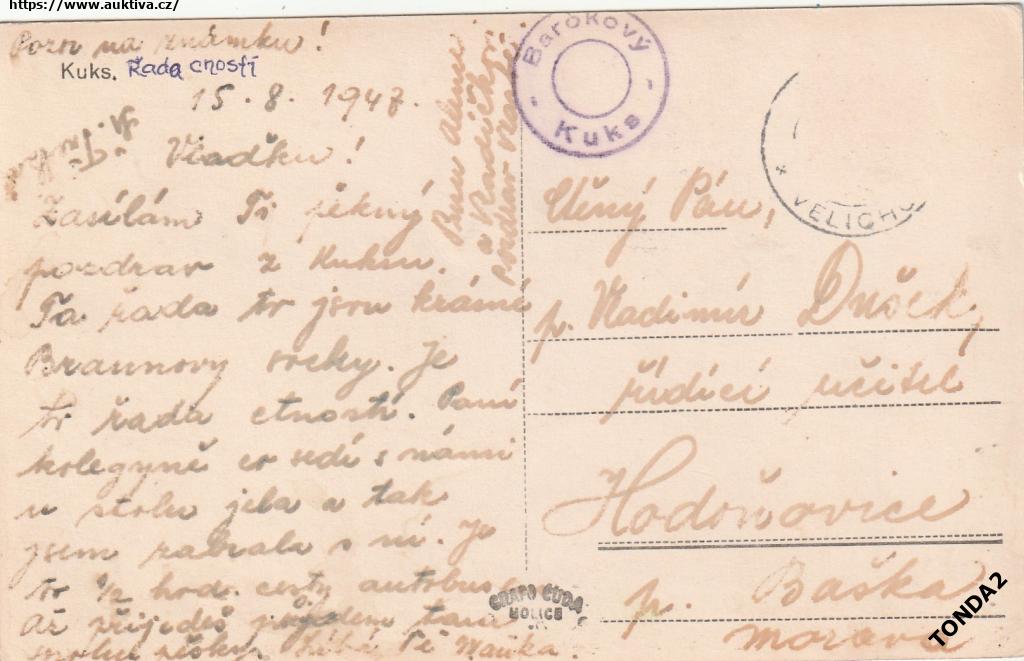 https://www.auktiva.cz/
Pozor na známku!
Kuks. Řada cností
15. 8. 1947.
Vlaďku!
Zasílám Ti pěkný
pozdrav z Kuksu.
Ta řada to jsou krásné
Braunovy sochy. Je
to řada ctností. Paní
kolegyně co sedí s námi
u stolu jela a tak
jsem  s ní. Je
to 1/2 hod. cesty autobusem
Až přijedeš pojedem tam
pěšky. Líbá Tě Mařka.
pozdrav
Barokový
Kuks
VELICHO
Ctěný Pán,
p. Vladimír Dušek,
řídící učitel
Hodoňovice
p. Baška
Morava
GRAFO ČUDA
HOLICE
TONDA2